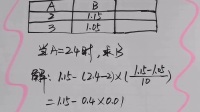 A B
2 1.15
3 1.05
当A=2.4时,求B
解: 1.15-(2.4-2)×(1.15-1.05/10)
=1.15-0.4×0.01